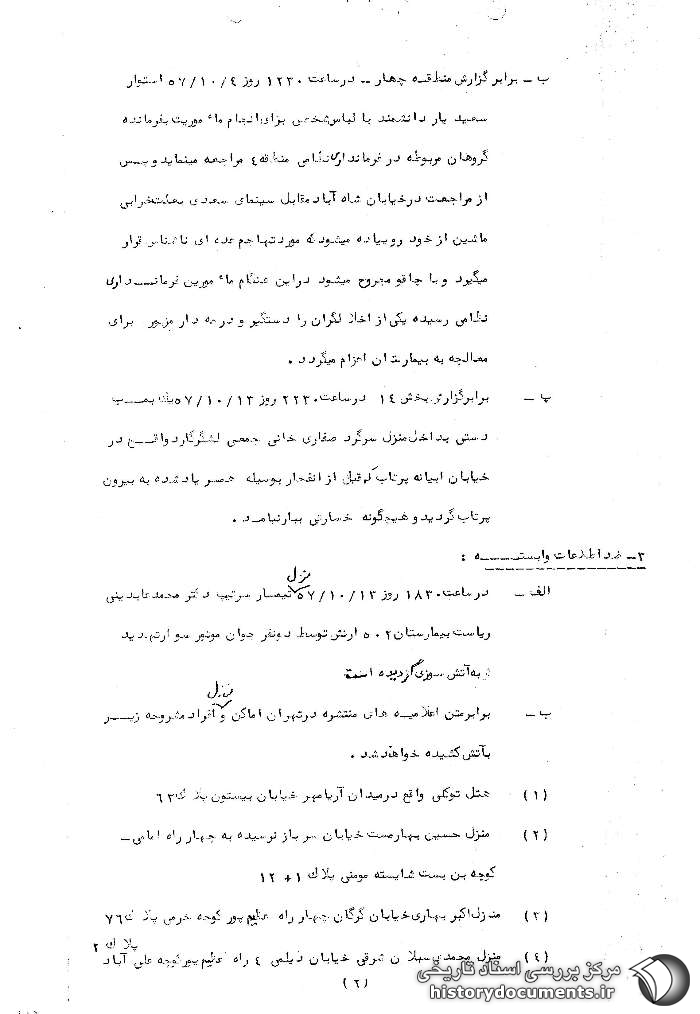 ب ــ برابر گزارش منطقه چهار ــ در ساعت ۱۲۳۰ روز ۵۷/۱۰/۴ استوار
سعید یار دانشمند با لباس شخصی برای انجام ماء موریت بفرمانده
گروهان مربوطه در فرمانداری نظامی منطقه ٤ مراجعه مینماید و پس
از مراجعت در خیابان شاه آباد مقابل سینمای سعدی بعلت خرابی
ماشین از خود رو پیاده میشود که مورد تهاجم عده ای ناشناس قرار
میگیرد و با چاقو مجروح میشود در این هنگام ماء مورین فرمانــداری
نظامی رسیده یکی از اخلا لگران را دستگیر و درجه دار مزبور برای
معالجه به بیمارستان اعزام میگردد .
پ ــ برابر گزارش بخش ۱۴ در ساعت ۲۲۳۰ روز ۵۷/۱۰/۱۳ یك بمــب
دستی بداخل منزل سرگرد صفاری خانی جمعی لشگر گارد واقــع در
خیابان ابیانه پرتاب که قبل از انفجار بوسیله همسر یاد شده به بیرون
پرتاب گردید و هیچگونه خسارتی ببار نیامد .
۳ــ ضد اطلاعات وابستــــه :
الف ــ در ساعت ۱۸۳۰ روز ۵۷/۱۰/۱۳ منزل تیمسار سرتیپ دکتر محمد عابدینی
ریاست بیمارستان ۵۰۲ ارتش توسط دو نفر جوان موتور سوار تهدید
به آتش سوزی گردیده است
ب ــ برابر متن اعلامیه های منتشره در تهران اماکن و منزل افراد مشروحه زیــر
بآتش کشیده خواهد شد .
(۱) هتل توکلی واقع در میدان آریامهر خیابان بیستون پلاك ۶۳
(۲) منزل حسین بهارمست خیابان سرباز نرسیده به چهار راه امامی ــ
کوچه بن بست شایسته مومنی پلاك ۱+ ۱۲
(۳) منزل اکبر بهاری خیابان گرگان چهار راه عظیم پور کوچه خرمی پلاك ۷۶
(٤) منزل محمدی سبلا ن شرقی خیابان دیلمی ٤ راه عظیم پور کوچه علی آباد
پلاك ۲
(۲)
مرکز بررسی اسناد تاریخی
historydocuments.ir